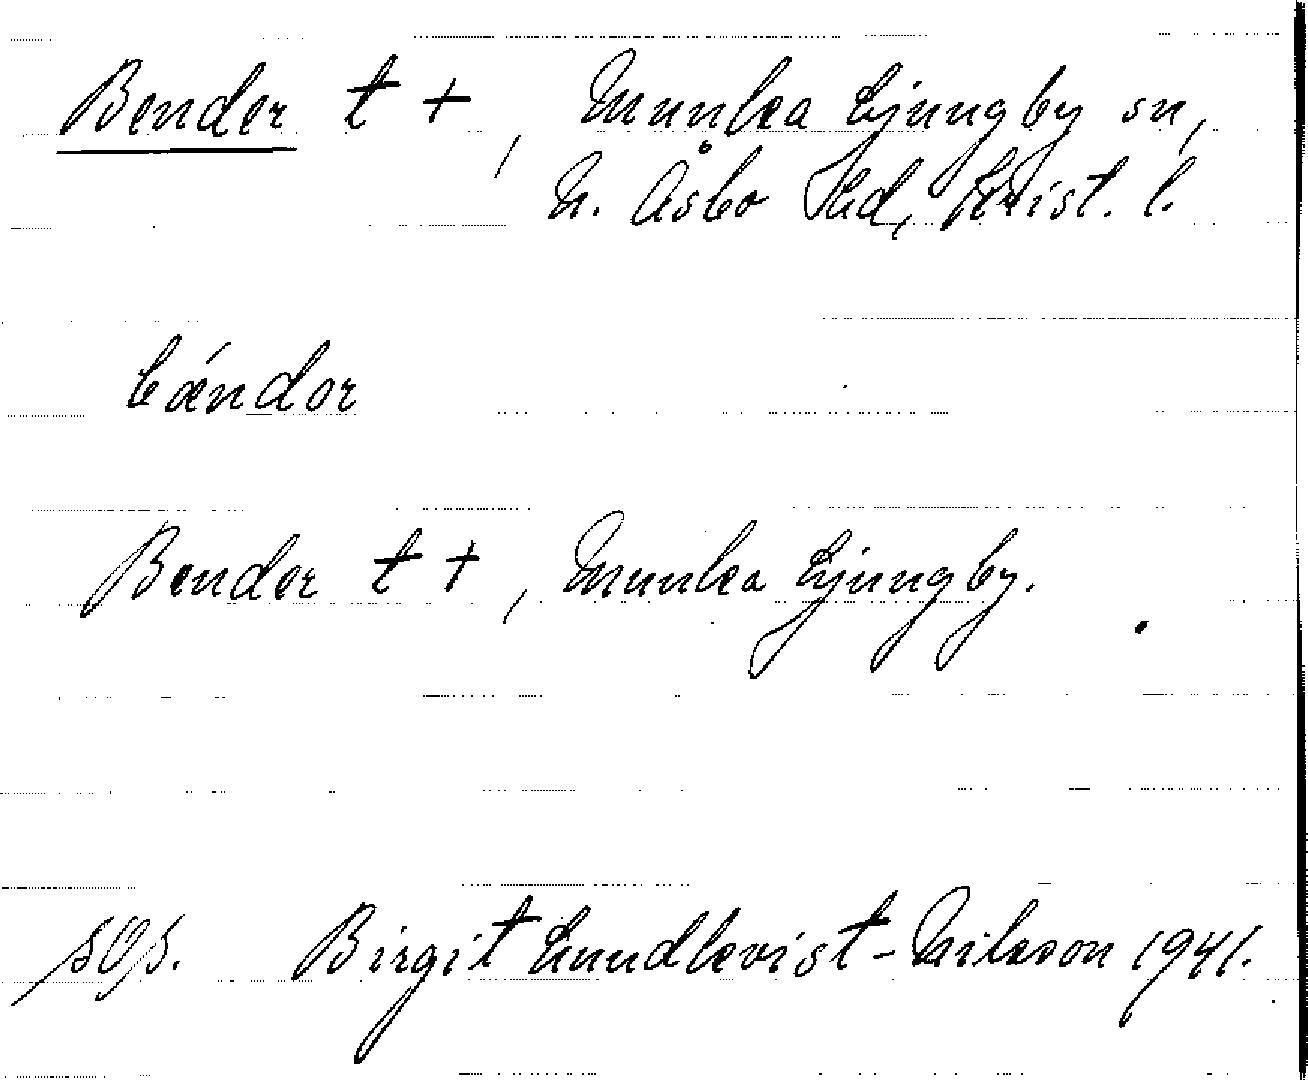 Bender t +, Munka Ljungby sn,
N. Åsbo Hd, Krist. l.
bándor
Bender t +, Munka Ljungby.
Birgit Lundkvist-Nilsson 1941.